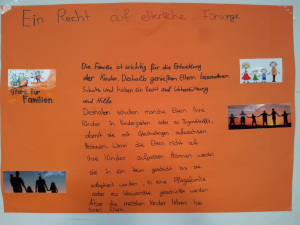 Ein Recht auf elterliche Fürsorge
Die Familie ist wichtig für die Entwicklung
der Kinder. Deshalb genießen Eltern besonderen
Schutz und haben ein Recht auf Unterstützung
und Hilfe
Deshalb schicken manche Eltern ihre
Kinder in Kindergarten oder zu Jugendtreffs,
damit sie mit Gleichaltrigen aufwachsen
können. Wenn die Eltern nicht auf
ihre Kinder aufpassen können werden
sie in ein Heim gesteckt bis sie
adoptiert werden, in eine Pflegefamilie
oder zu Verwandte geschickt werden
Aber die meisten Kinder leben bei
ihren Eltern
Stark für
Familien